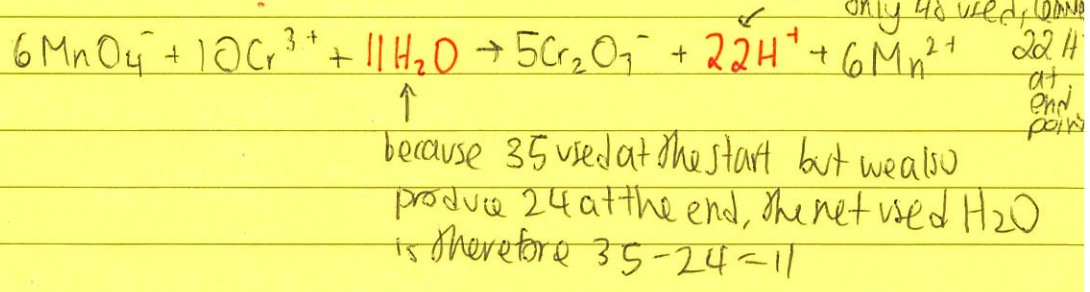 only 48 used,
6MnO₄⁻ + 10Cr³⁺ + 11H₂O → 5Cr₂O₇⁻ + 22H⁺ + 6Mn²⁺
22H
at
end
point
because 35 used at the start but we also
produce 24 at the end, the net used H₂O
is therefore 35-24=11